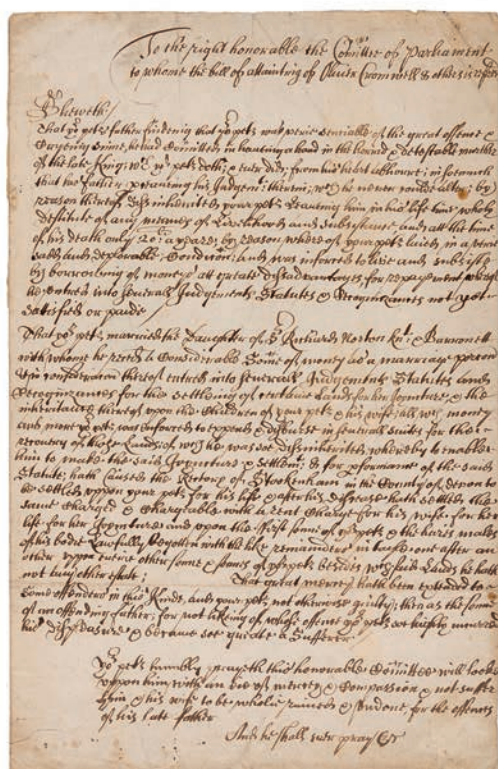 To the right honorable the Com̃ittee of Parliament
to whome the bill of attainting of Oliver Cromwell & others is referred
Sheweth
That yor petrs father findeing that yor petr was verie sensiable of the great offence &
Cryeing crime, he had Com̃itted in haveing a hand in the horrid & detestable murther
of the late King; wch yor petr doth, & ever did, from his hart abhorre; in soemuch
that his father perceaving his Judgemt: therein; wch he never could alter; by
reason thereof dissinherited your petr Leaveing him in his life time wholy
destitute of any meanes of Livelihood and Subsistance and att the time
of his death only 20: a yeare; by reason whereof your petr lived in a very
sadd and deplorable Condicion: and was inforced to live and subsist
by borrowing of money at greate disadvantages, for repayment whereof
he entred into severall Judgements, Statutes & Recognizances not yet
satisfied or paide
That yor petr, married the Daughter of Sr Richard Norton Knt: & Barronett
with whome he recd a Considerable Som̃e of money as a marriage porcon
& in consideration thereof entred into severall Judgements Statutes and
Recognizances for the setling of certaine Lands for her Joynture & the
inheritance thereof upon the Children of your petr & his wife; all wch money
and more yor petr was enforced to expend & disburse in severall suites for the re-
covery of those Lands of wch he was soe dissinherited, whereby to enable
him to make the said Joynture & Settlemt: & for pformance of the said
Statute; hath Caused the Rectory of Stockenham in the County of Devon to
be setled uppon your petr for his life & after his decease hath setled the
same Charged & Chargeable with a rent Charge for his wife for her
life for her Joynture and upon the first sonne of yor petr & the heires males
of his bodie Lawfully begotten with the like remainders in taile one after an
other uppon twelve other sonnes of yor petr besides wch said Lands he hath
not any other estate;
That great mercy hath been extended to
some offenders in this Kinde, and your petr not otherwise guilty, then as the sonne
of an offending father; for not likeing of whose offence yor petr soe highly incurred
his displeasure & became soe greate a Sufferer.
Yor petr humbly prayeth this honorable Com̃ittee will looke
uppon him with an eie of mercy & Compassion & not suffer
him & his wife to be wholie ruined & undone, for the offences
of his late father
And he shall ever pray &c